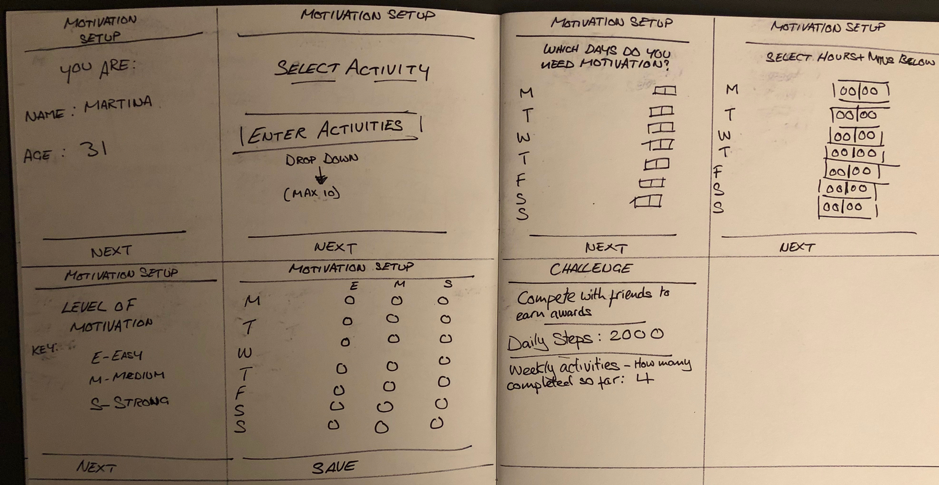 MOTIVATION
SETUP
YOU ARE:
NAME: MARTINA
AGE: 31
NEXT
MOTIVATION SETUP
SELECT ACTIVITY
ENTER ACTIVITIES
DROP DOWN
(MAX 10)
NEXT
MOTIVATION SETUP
WHICH DAYS DO YOU
NEED MOTIVATION?
M
T
W
T
F
S
S
NEXT
MOTIVATION SETUP
SELECT HOURS+ MINS BELOW
M 00|00
T 00|00
W 00|00
T 00|00
F 00|00
S 00|00
S 00|00
NEXT
MOTIVATION SETUP
LEVEL OF
MOTIVATION
KEY:
E-EASY
M-MEDIUM
S-STRONG
NEXT
MOTIVATION SETUP
E M S
M
T
W
T
F
S
S
SAVE
CHALLENGE
Compete with friends to
earn awards
Daily Steps: 2000
Weekly activities - How many
completed so far: 4